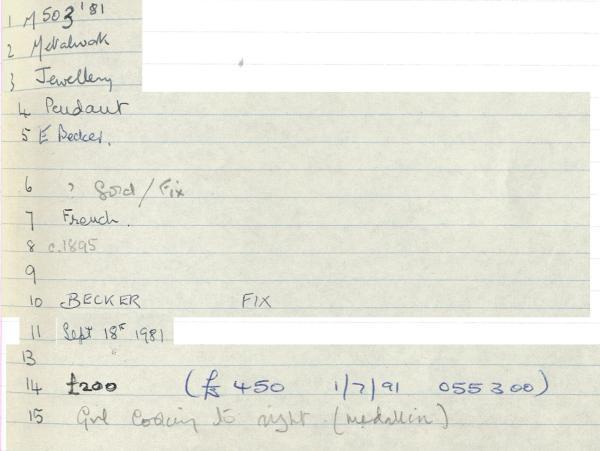 1 M503'81
2 Metalwork
3 Jewellery
4 Pendant
5 E Becker.
6 ? Gold / Fix
7 French.
8 c.1895
9
10 BECKER FIX
11 Sept 18th 1981
13
14 £200 (£ 450 1/7/91 055300)
15 Girl looking to right (medallion)